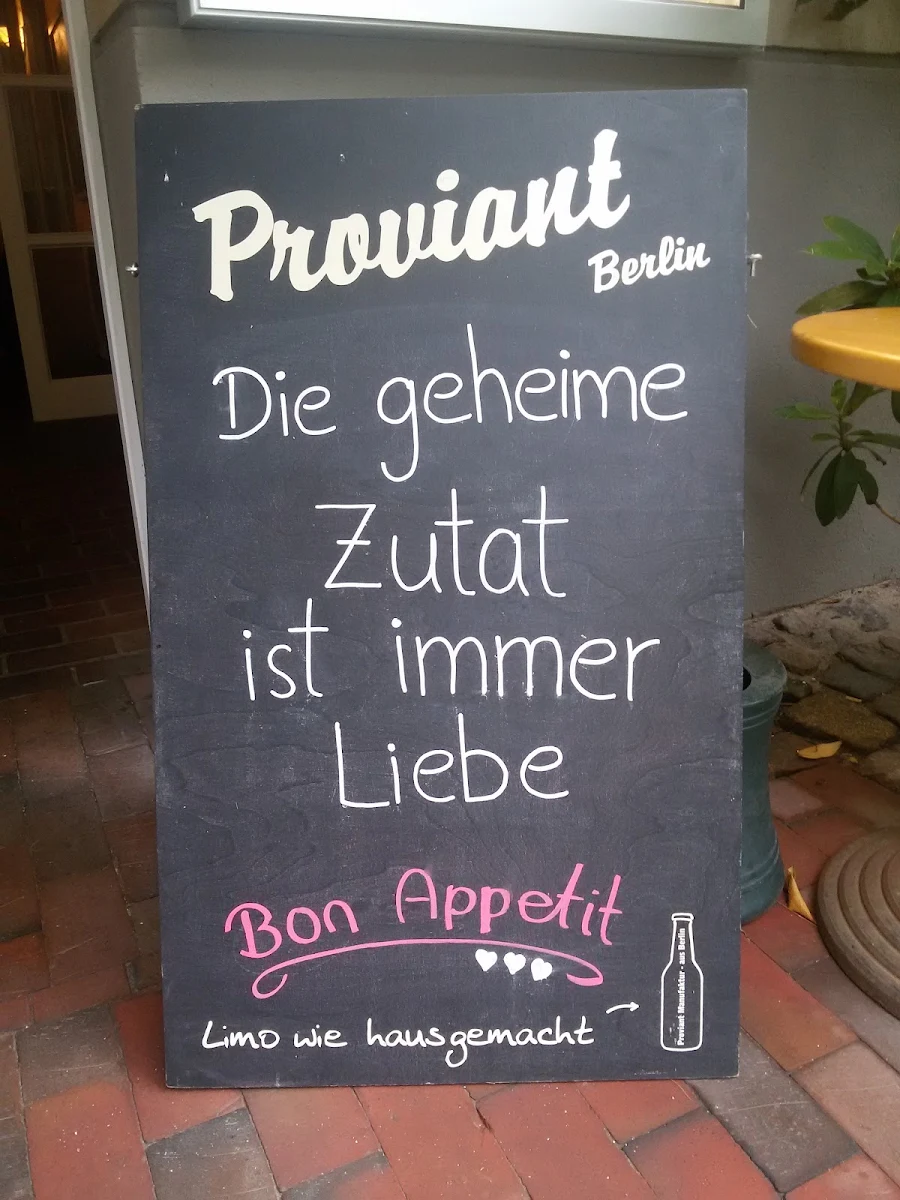 Proviant
Berlin
Die geheime
Zutat
ist immer
Liebe
Bon Appetit
Limo wie hausgemacht
Proviant Manufaktur - aus Berlin